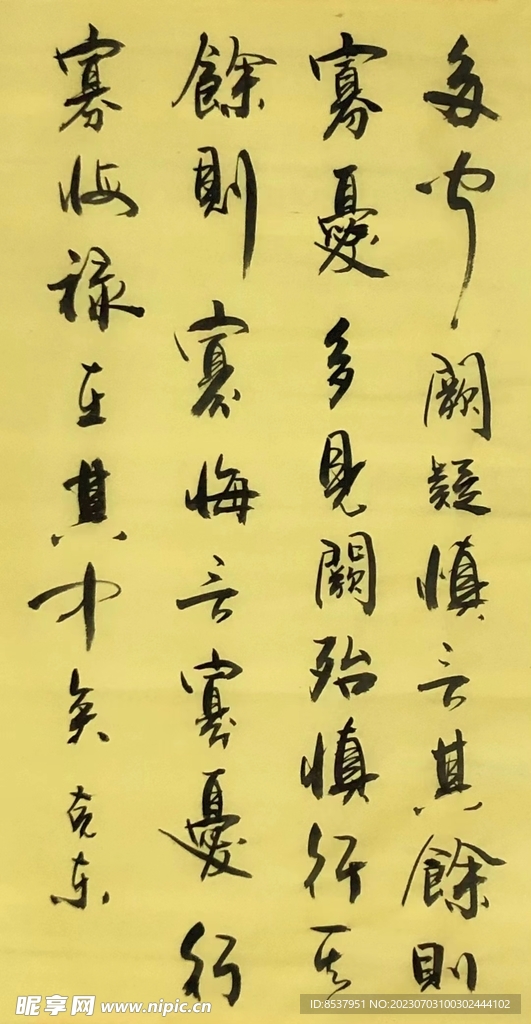 多聞闕疑慎言其餘則
寡憂多見闕殆慎行其
餘則寡悔言寡憂行
寡悔祿在其中矣 克东
昵享网 www.nipic.cn
ID:8537951 NO:20230703100302444102